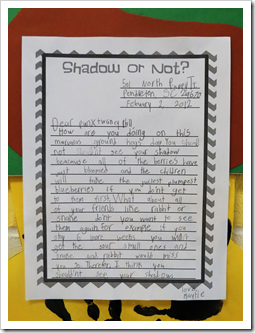 Shadow or Not?
North
Pendleton SC
2012
Dear
How are you doing on this
day You should
not see your shadow
because all of the berries have
just bloomed and the children
will take the plumpest
blueberries if you don't get
to them first. What about all
of your friends like rabbit or
snake don't you want to see
them again for example if you
stay 6 more weeks you will
get the small ones and
snake and rabbit would miss
you so Therefore, I think you
shouldnt see your shadow.